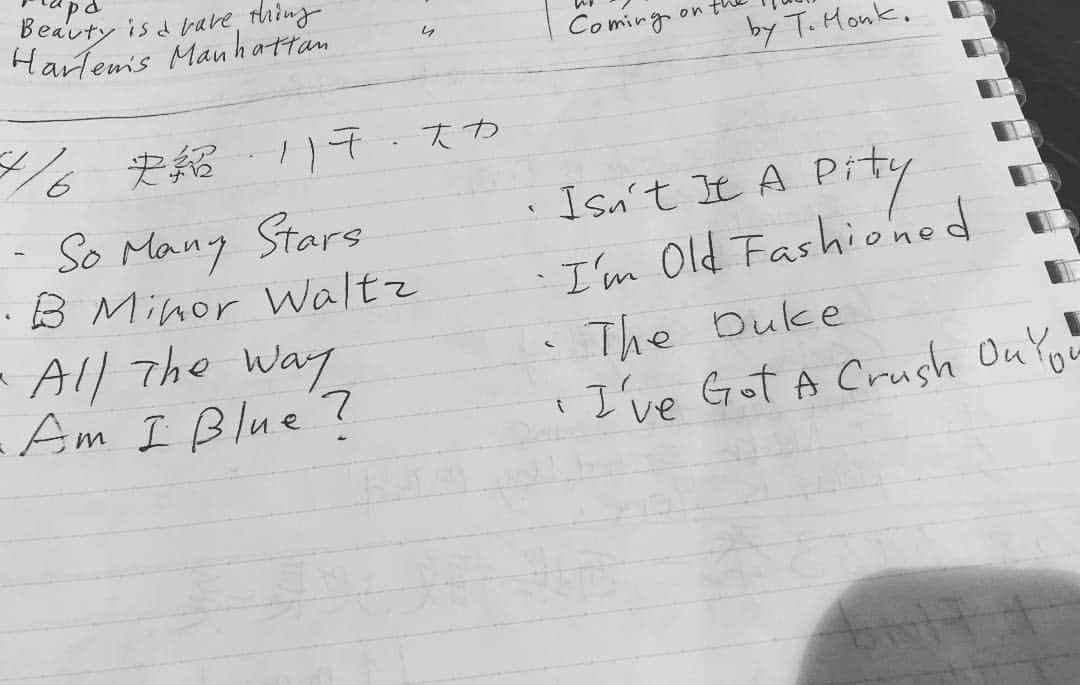 Beauty is a rare thing
Harlem's Manhattan "
Coming on the
by T. Monk.
4/6 央紹・川千・大力
- So Many Stars
・B Minor Waltz
・All The Way
・Am I Blue?
・Isn't It A Pity
・I'm Old Fashioned
・The Duke
・I've Got A Crush On You